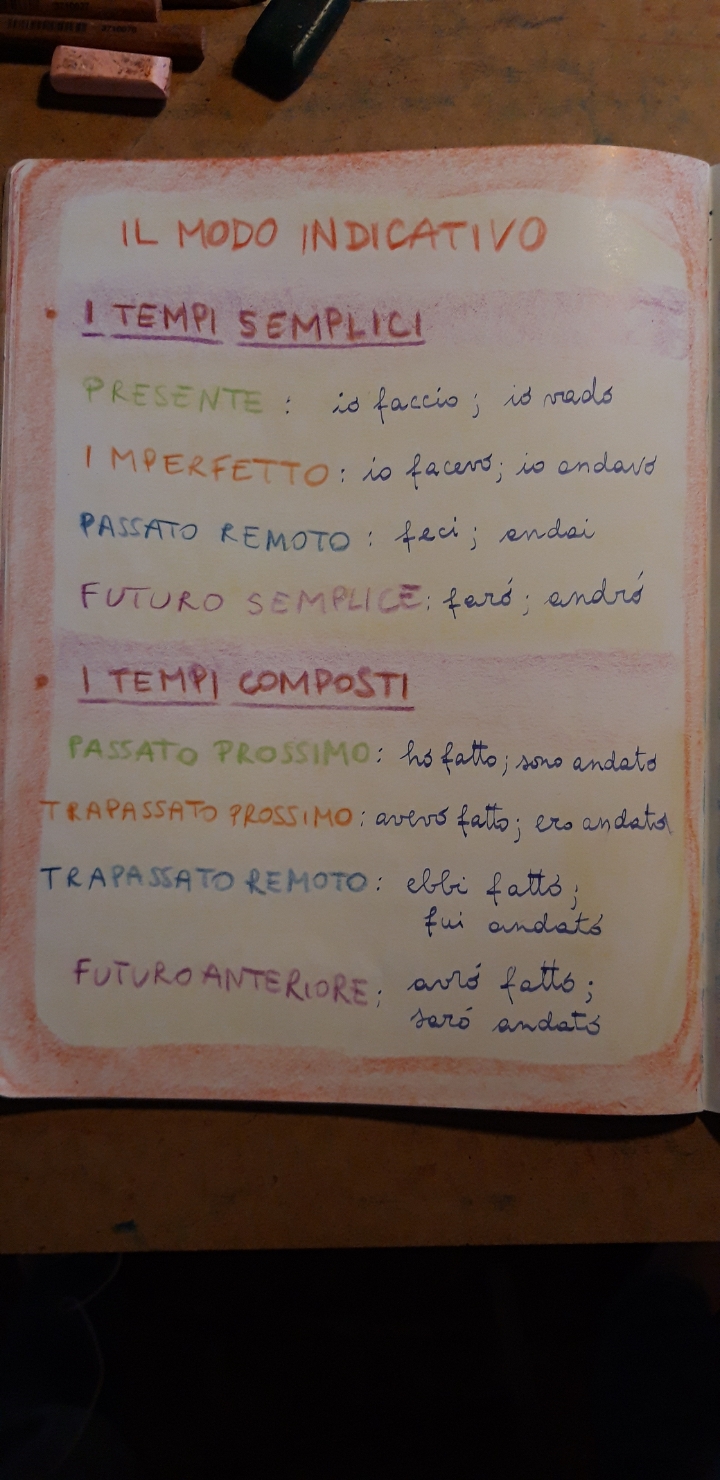 IL MODO INDICATIVO
• I TEMPI SEMPLICI
PRESENTE : io faccio ; io vado
IMPERFETTO : io facevo ; io andavo
PASSATO REMOTO : feci ; andai
FUTURO SEMPLICE : faró ; andró
• I TEMPI COMPOSTI
PASSATO PROSSIMO : ho fatto ; sono andato
TRAPASSATO PROSSIMO : avevo fatto ; ero andato
TRAPASSATO REMOTO : ebbi fatto ;
fui andato
FUTURO ANTERIORE : avró fatto ;
saró andato